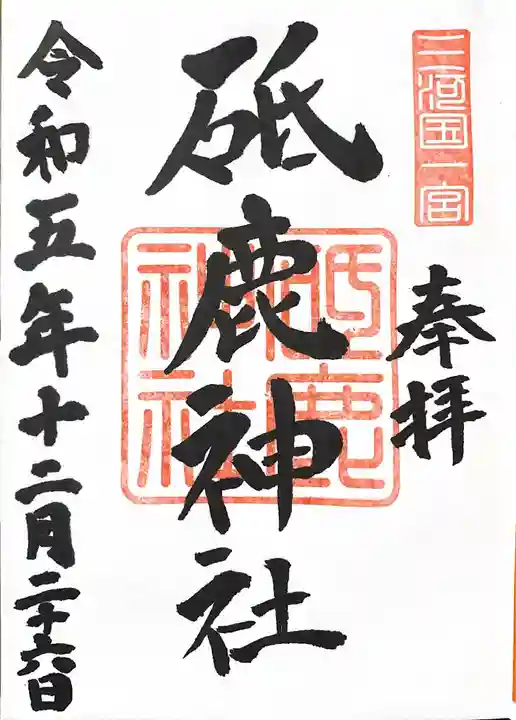 三河国一宮
奉拝
砥鹿神社
砥鹿神社
令和五年十二月二十六日